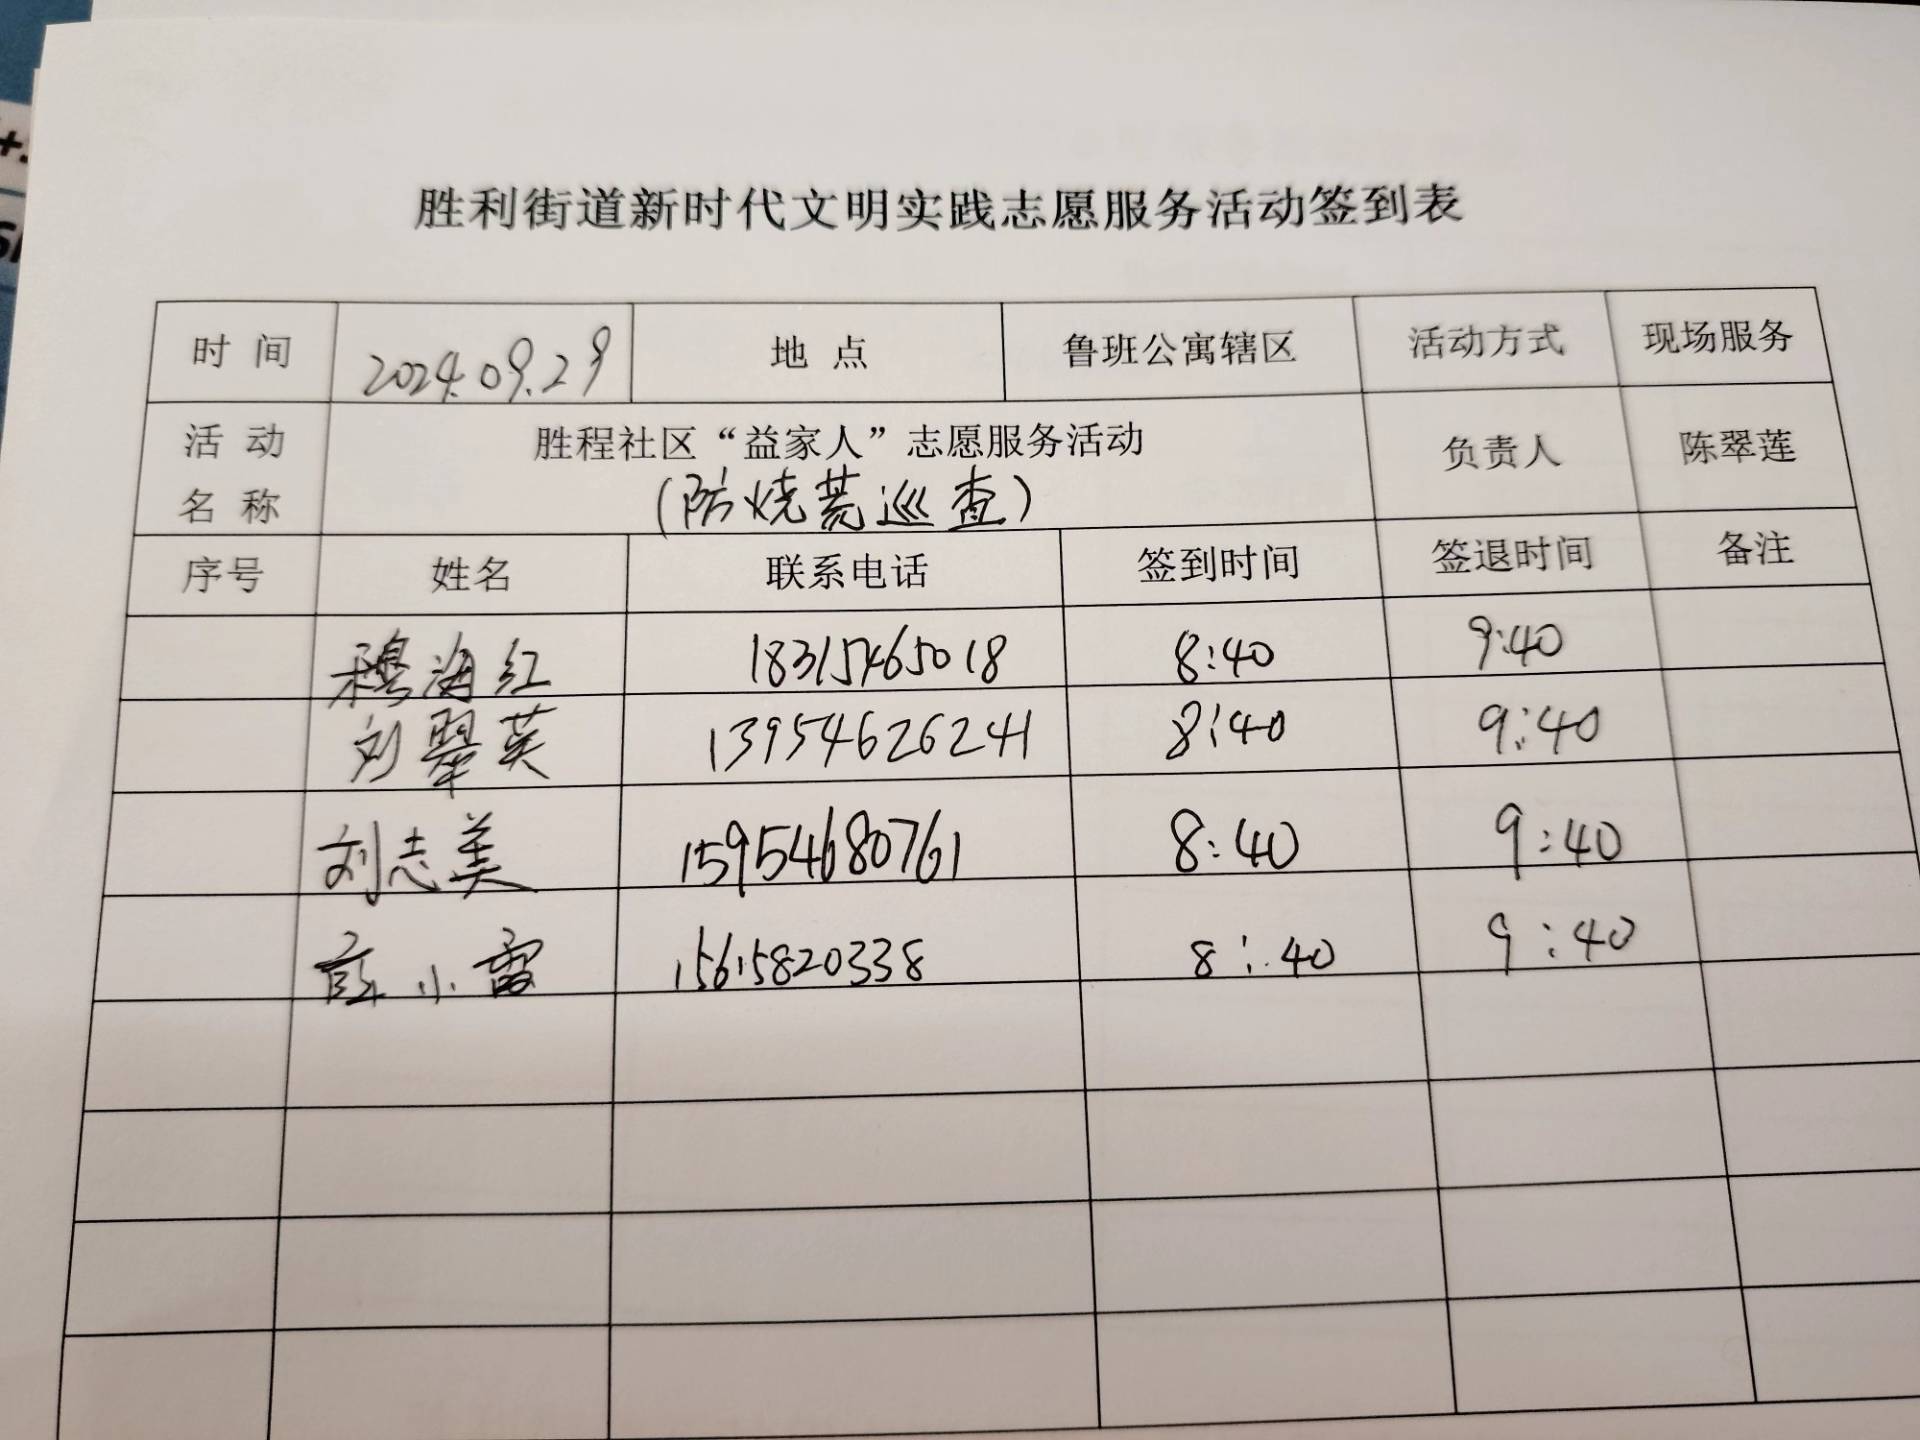 胜利街道新时代文明实践志愿服务活动签到表
时 间 2024.09.29 地 点 鲁班公寓辖区 活动方式 现场服务
活 动 名 称 胜程社区“益家人”志愿服务活动 负责人 陈翠莲
(防烧荒巡查)
序号 姓名 联系电话 签到时间 签退时间 备注
穆海红 18315465018 8:40 9:40
刘翠英 13954626241 8:40 9:40
刘志美 15954680761 8:40 9:40
薛小雷 15615820338 8:40 9:40